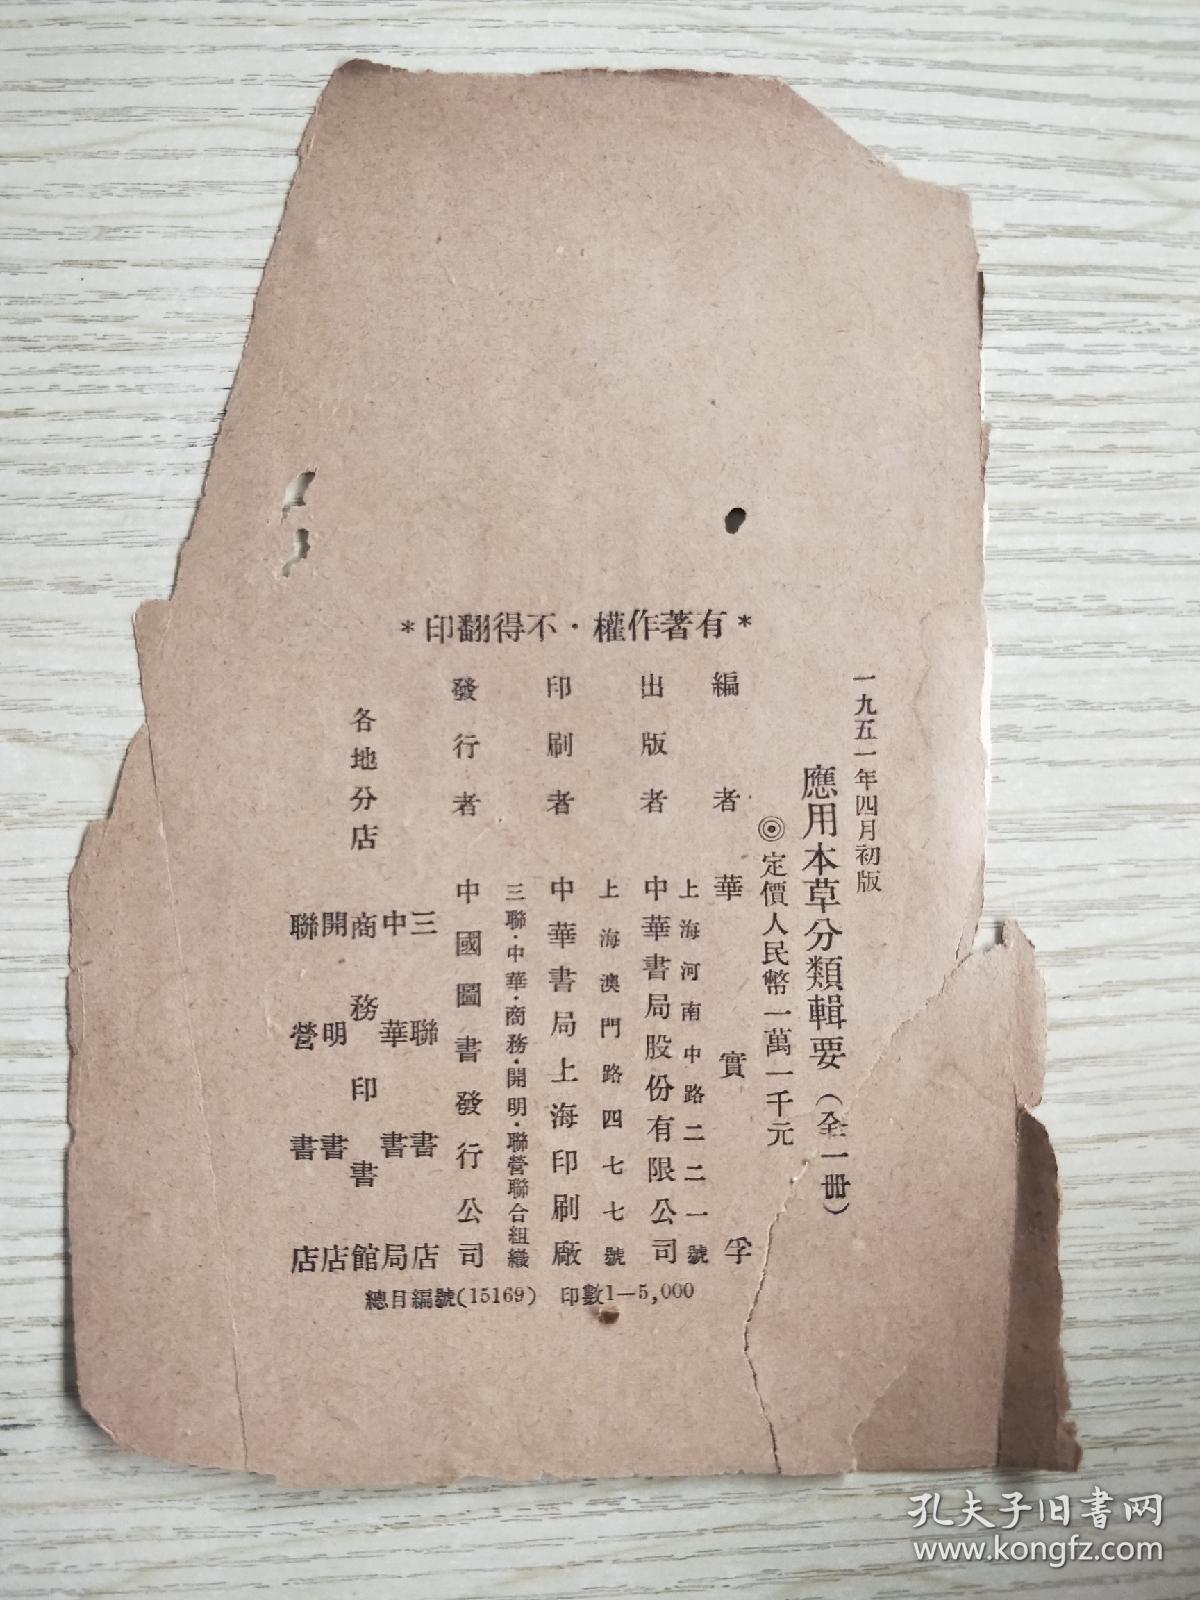 一九五一年四月初版
應用本草分類輯要（全一冊）
◎定價人民幣一萬一千元
*有著作權·不得翻印*
編者 華實孚
上海河南中路二二一號
出版者 中華書局股份有限公司
上海澳門路四七七號
印刷者 中華書局上海印刷廠
三聯·中華·商務·開明·聯營聯合組織
發行者 中國圖書發行公司
各地分店
三聯書店
中華書局
商務印書館
開明書店
聯營書店
總目編號(15169) 印數1—5,000
孔夫子旧书网
www.kongfz.com